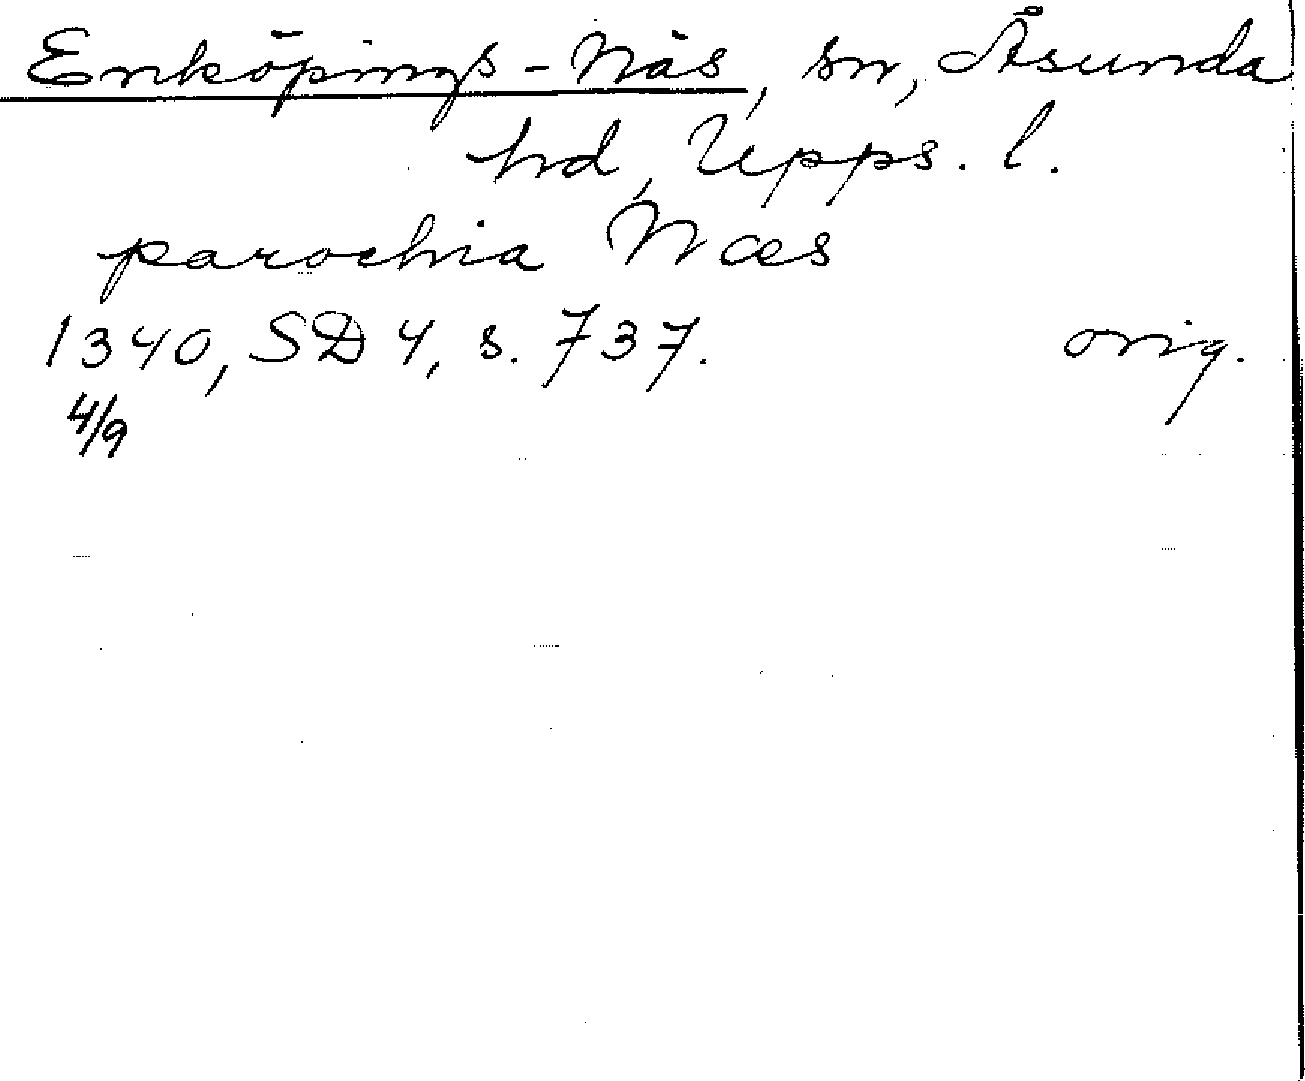 Enköpings-Näs, sn, Åsunda
hd, Upps. l.
parochia Næs
1340, SD 4, s. 737. orig.
4/9